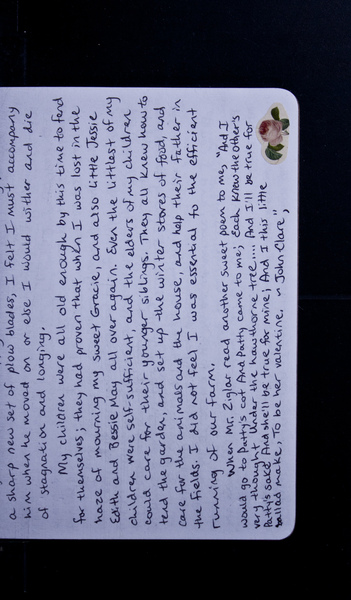 a sharp new set of plow blades, I felt I must accompany
him when he moved on or else I would wither and die
of stagnation and longing.
My children were all old enough by this time to fend
for themselves; they had proven that when I was lost in the
haze of mourning my sweet Gracie, and also little Jessie
Edith and Bessie May all over again. Even the littlest of my
children were self-sufficient, and the elders of my children
could care for their younger siblings. They all knew how to
tend the garden, and set up the winter stores of food, and
care for the animals and the house, and help their father in
the fields. I did not feel I was essential to the efficient
running of our farm.
When Mr. Ziglar read another sweet poem to me, "And I
would go to Patty's cot And Patty came to me; Each knew the other's
very thought Under the hawthorne tree.... And I'll be true for
Patty's sake And she'll be true for mine; And I this little
ballad make, To be her valentine," John Clare",